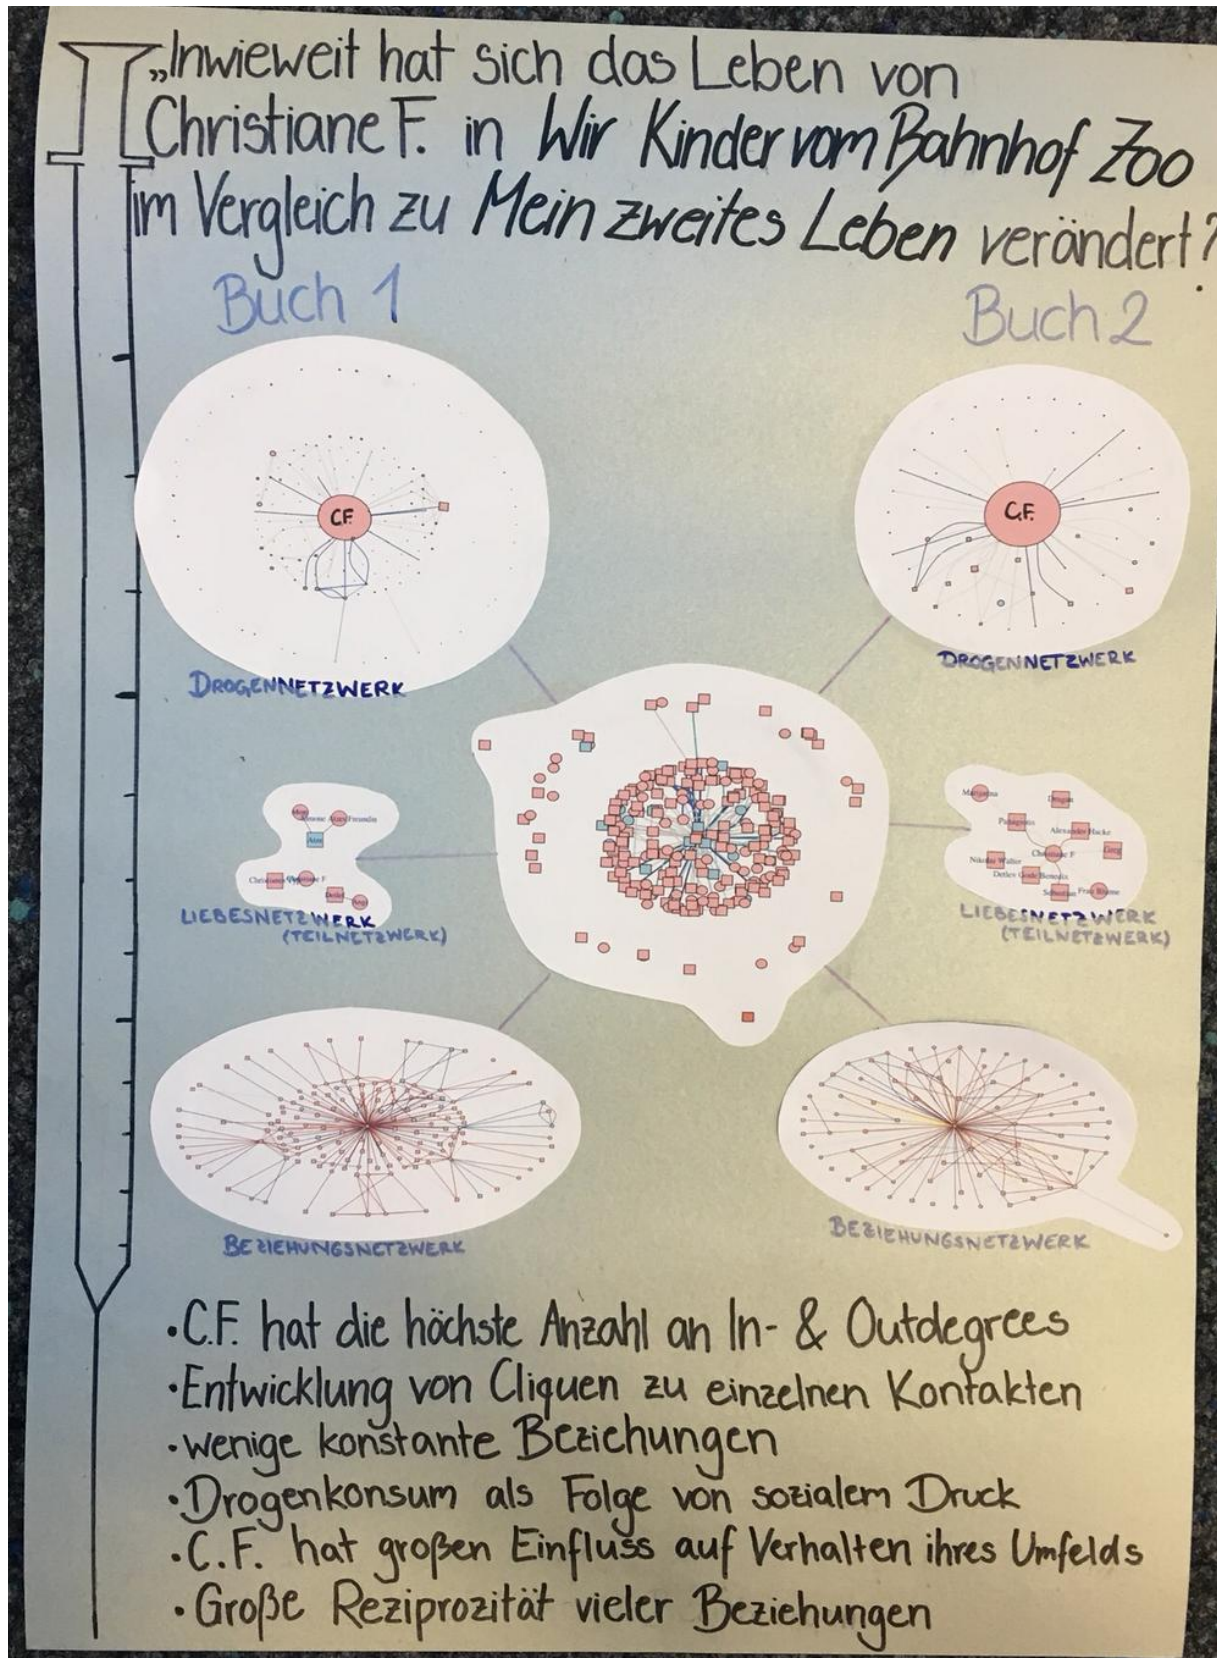 „Inwieweit hat sich das Leben von
Christiane F. in Wir Kinder vom Bahnhof Zoo
im Vergleich zu Mein zweites Leben verändert?
Buch 1
Buch 2
C.F.
C.F.
DROGENNETZWERK
DROGENNETZWERK
Atze
Detlef
LIEBESNETZWERK
(TEILNETZWERK)
Panagiotis
Alexander Hacke
Christiane F
Nikolas Wallier
Detlev Gode Benedix
Sebastian
LIEBESNETZWERK
(TEILNETZWERK)
BEZIEHUNGSNETZWERK
BEZIEHUNGSNETZWERK
•C.F. hat die höchste Anzahl an In- & Outdegrees
•Entwicklung von Cliquen zu einzelnen Kontakten
•wenige konstante Beziehungen
•Drogenkonsum als Folge von sozialem Druck
•C.F. hat großen Einfluss auf Verhalten ihres Umfelds
•Große Reziprozität vieler Beziehungen